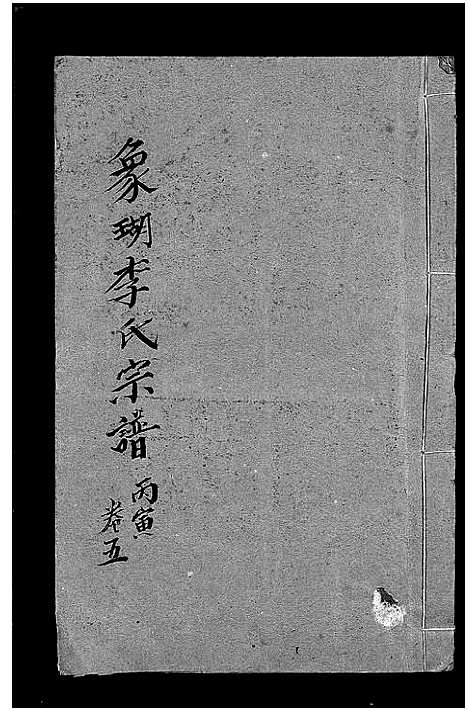 象瑚李氏宗譜
丙寅
卷五